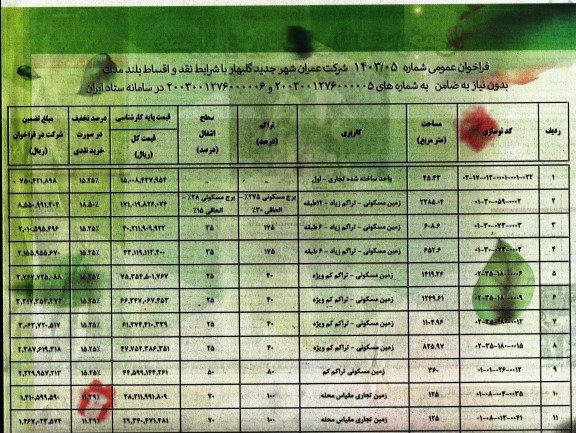 فراخوان عمومی شماره ۱۴۰۳/۰۵ شرکت عمران شهر جدید گلبهار با شرایط نقد و اقساط بلند مدت
بدون نیاز به ضامن به شماره های ۲۰۰۳۰۰۱۲۷۶۰۰۰۰۰۵ و ۲۰۰۳۰۰۱۲۷۶۰۰۰۰۰۶ در سامانه ستاد ایران
ردیف کد نوسازی مساحت (متر مربع) کاربری تراکم (درصد) سطح اشغال (درصد) قیمت پایه کارشناسی قیمت کل (ریال) درصد تخفیف در صورت خرید نقدی مبلغ تضمین شرکت در فراخوان (ریال)
۱ ۰۲-۱۷-۰۱۲-۰۰۰۱-۰۰۱-۰۲۲ ۴۵.۴۳ واحد ساخته شده تجاری - اول - - ۱۵,۰۰۸,۴۳۷,۹۵۴ ۱۵.۲۵٪ ۷۵۰,۴۲۱,۸۹۸
۲ ۰۱-۳۰-۰۵۹-۰۰۰۲ ۲۲۸۵.۰۴ زمین مسکونی - تراکم زیاد - ۱۲طبقه برج مسکونی ۳۷۵٪ - الحاقی ۳۰٪ برج مسکونی ۳۸٪ - الحاقی ۱۵٪ ۱۷۱,۰۱۹,۸۲۶,۰۷۴ ۱۸.۵۰٪ ۸,۵۵۰,۹۹۱,۳۰۴
۳ ۰۱-۳۰-۰۷۳-۰۰۰۳ ۶۰۸.۶ زمین مسکونی - تراکم زیاد - ۶ طبقه ۱۷۵ ۳۵ ۴۰,۲۱۱,۹۰۹,۹۲۲ ۱۵.۲۵٪ ۲,۰۱۰,۵۹۵,۴۹۶
۴ ۰۱-۳۰-۰۷۳-۰۰۰۴ ۶۵۲.۶ زمین مسکونی - تراکم زیاد - ۶ طبقه ۱۷۵ ۳۵ ۴۳,۱۱۹,۱۱۳,۴۰۰ ۱۵.۲۵٪ ۲,۱۵۵,۹۵۵,۶۷۰
۵ ۰۲-۳۵-۱۸۰-۰۰۰۶ ۱۴۱۹.۲۶ زمین مسکونی - تراکم کم ویژه ۴۰ ۲۵ ۷۵,۳۵۴,۵۰۱,۷۶۷ ۱۵.۲۵٪ ۳,۷۶۷,۷۲۵,۰۸۸
۶ ۰۲-۳۵-۱۸۰-۰۰۰۹ ۱۲۴۹.۶۱ زمین مسکونی - تراکم کم ویژه ۴۰ ۲۵ ۶۶,۳۴۷,۰۶۷,۴۵۳ ۱۵.۲۵٪ ۳,۳۱۷,۳۵۳,۳۷۳
۷ ۰۲-۳۵-۱۸۰-۰۰۱۲ ۱۱۰۴.۹۶ زمین مسکونی - تراکم کم ویژه ۴۰ ۲۵ ۶۱,۲۷۴,۴۱۰,۳۳۹ ۱۵.۲۵٪ ۳,۰۶۳,۷۲۰,۵۱۷
۸ ۰۲-۳۵-۱۸۰-۰۰۱۵ ۸۲۵.۹۷ زمین مسکونی - تراکم کم ویژه ۴۰ ۲۵ ۴۷,۷۵۲,۳۸۶,۳۵۱ ۱۵.۲۵٪ ۲,۳۸۷,۶۱۹,۳۱۸
۹ ۰۱-۰۱-۰۲۶-۰۰۱۲ ۳۶۰ زمین مسکونی تراکم کم ۸۰ ۵۰ ۴۴,۵۹۹,۱۴۴,۲۶۱ ۱۵.۲۵٪ ۲,۲۲۹,۹۵۷,۲۱۳
۱۰ ۰۱-۰۸-۰۰۴-۰۰۳۵ ۱۲۵ زمین تجاری مقیاس محله ۱۰۰ ۷۰ ۲۸,۲۱۱,۹۹۱,۸۰۹ ۱۱.۳۹٪ ۱,۴۱۰,۵۹۹,۵۹۰
۱۱ ۰۱-۰۸-۰۱۳-۰۰۴۱ ۱۲۵ زمین تجاری مقیاس محله ۱۰۰ ۷۰ ۲۹,۳۴۰,۴۷۱,۴۸۱ ۱۱.۳۹٪ ۱,۴۶۷,۰۲۳,۵۷۴